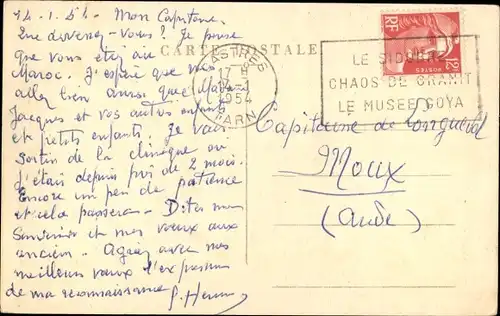 14.1.54. Mon Capitaine.
Que devenez-vous? Je pense
que vous étiez au
Maroc. J'espère que vous
allez bien ainsi que Madame
Jacques et vos autres enfants
et petits enfants. Je vais
sortir de la clinique où
j'étais depuis près de 2 mois.
Encore un peu de patience
et cela passera. Dites mon
souvenir et mes vœux aux
anciens. Agréez avec mes
meilleurs vœux l'expression
de ma reconnaissance
CARTE POSTALE
CASTRES
17 H
1954
TARN
LE SIDOBRE
CHAOS DE GRANIT
LE MUSEE GOYA
RF
POSTES
Capitaine de Longueval
Moux
(Aude)